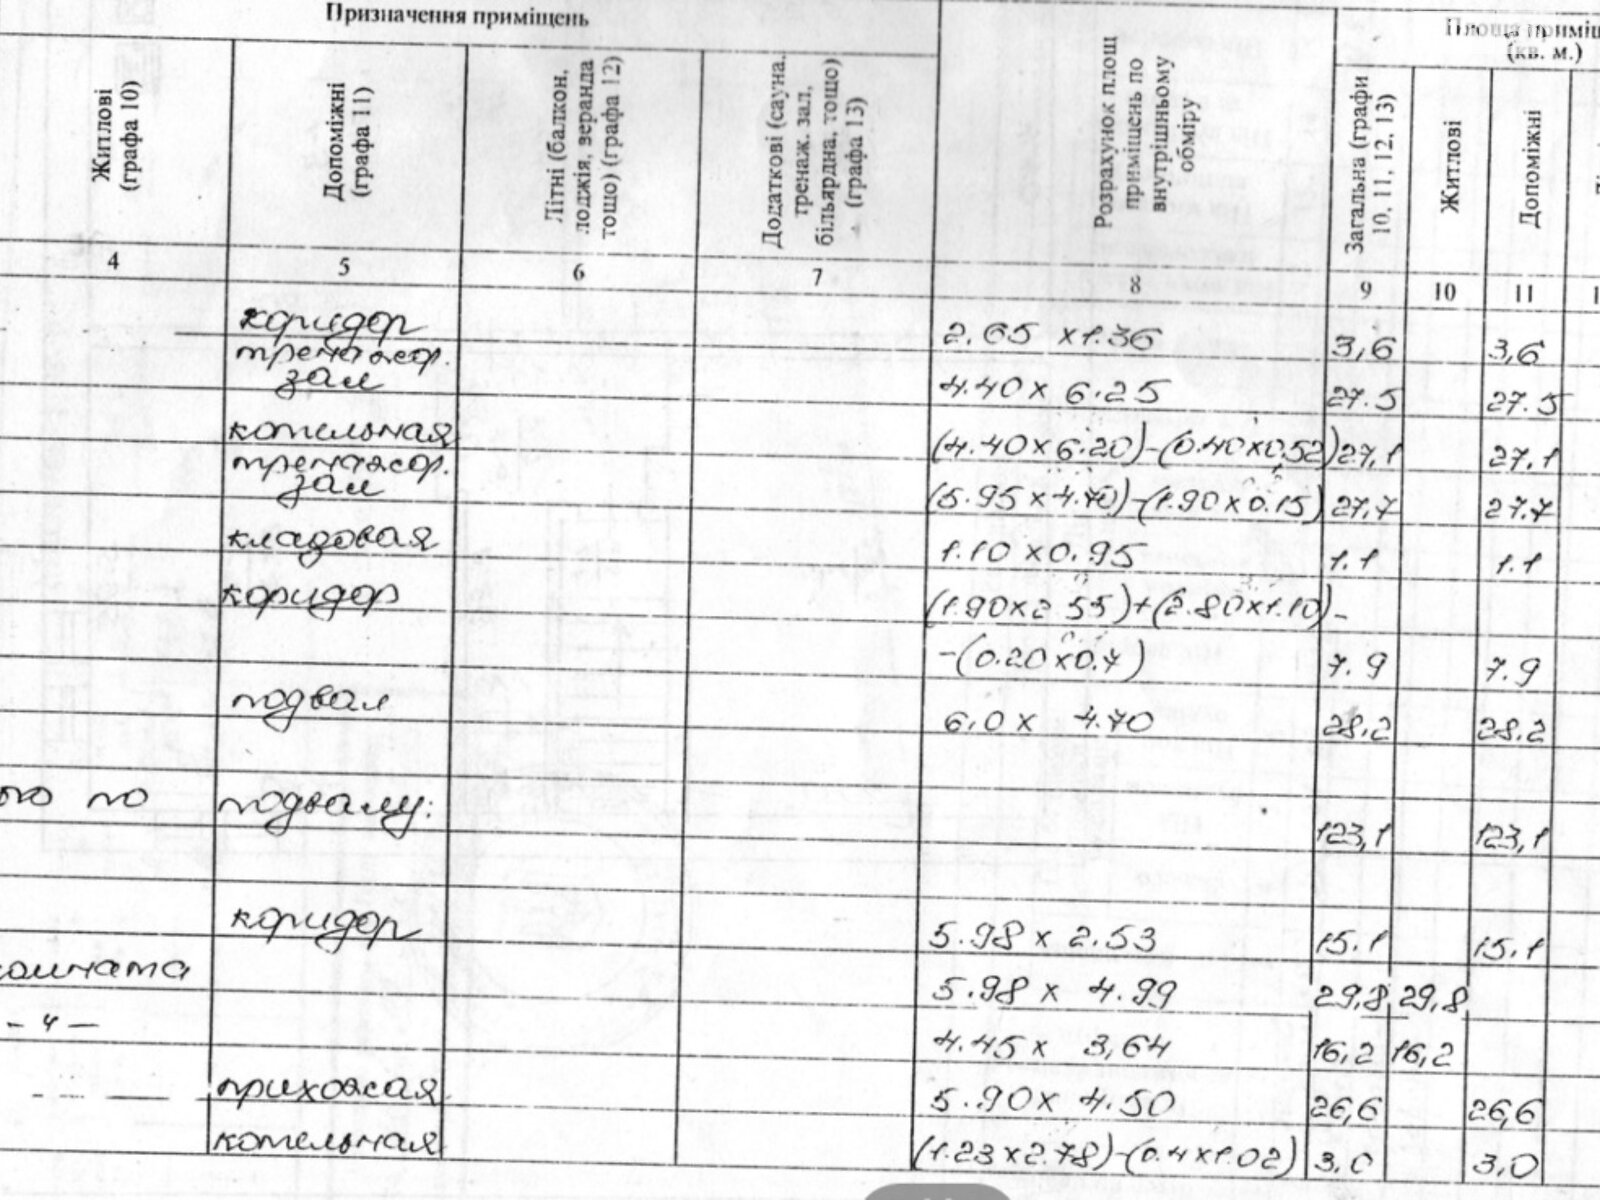 Призначення приміщень
Площа приміщ
(кв. м.)
Житлові
(графа 10)
Допоміжні
(графа 11)
Літні (балкон,
лоджія, веранда
тощо) (графа 12)
Додаткові (сауна,
тренаж. зал,
більярдна, тощо)
(графа 13)
Розрахунок площ
приміщень по
внутрішньому
обміру
Загальна (графи
10, 11, 12, 13)
Житлові
Допоміжні
4 5 6 7 8 9 10 11 1
коридор 2.65 x1.36 3,6 3,6
тренажор.
зал 4.40 x 6.25 27.5 27.5
котельная (4.40 x 6.20)-(0.40x0.52) 27,1 27.1
тренажор.
зал (5.95 x 4.70)-(1.90 x 0.15) 27,7 27.7
кладовая 1.10 x 0.95 1.1 1.1
коридор (1.90x2.55)+(2.80x1.10)-
-(0.20x0.7) 7.9 7.9
подвал 6.0 x 4.70 28.2 28.2
по подвалу: 123,1 123,1
коридор 5.98 x 2.53 15.1 15.1
комната 5.98 x 4.99 29,8 29,8
-"- 4.45 x 3,64 16,2 16,2
прихожая 5.90x 4.50 26,6 26,6
котельная (1.23 x 2.78)-(0.4x1.02) 3.0 3.0